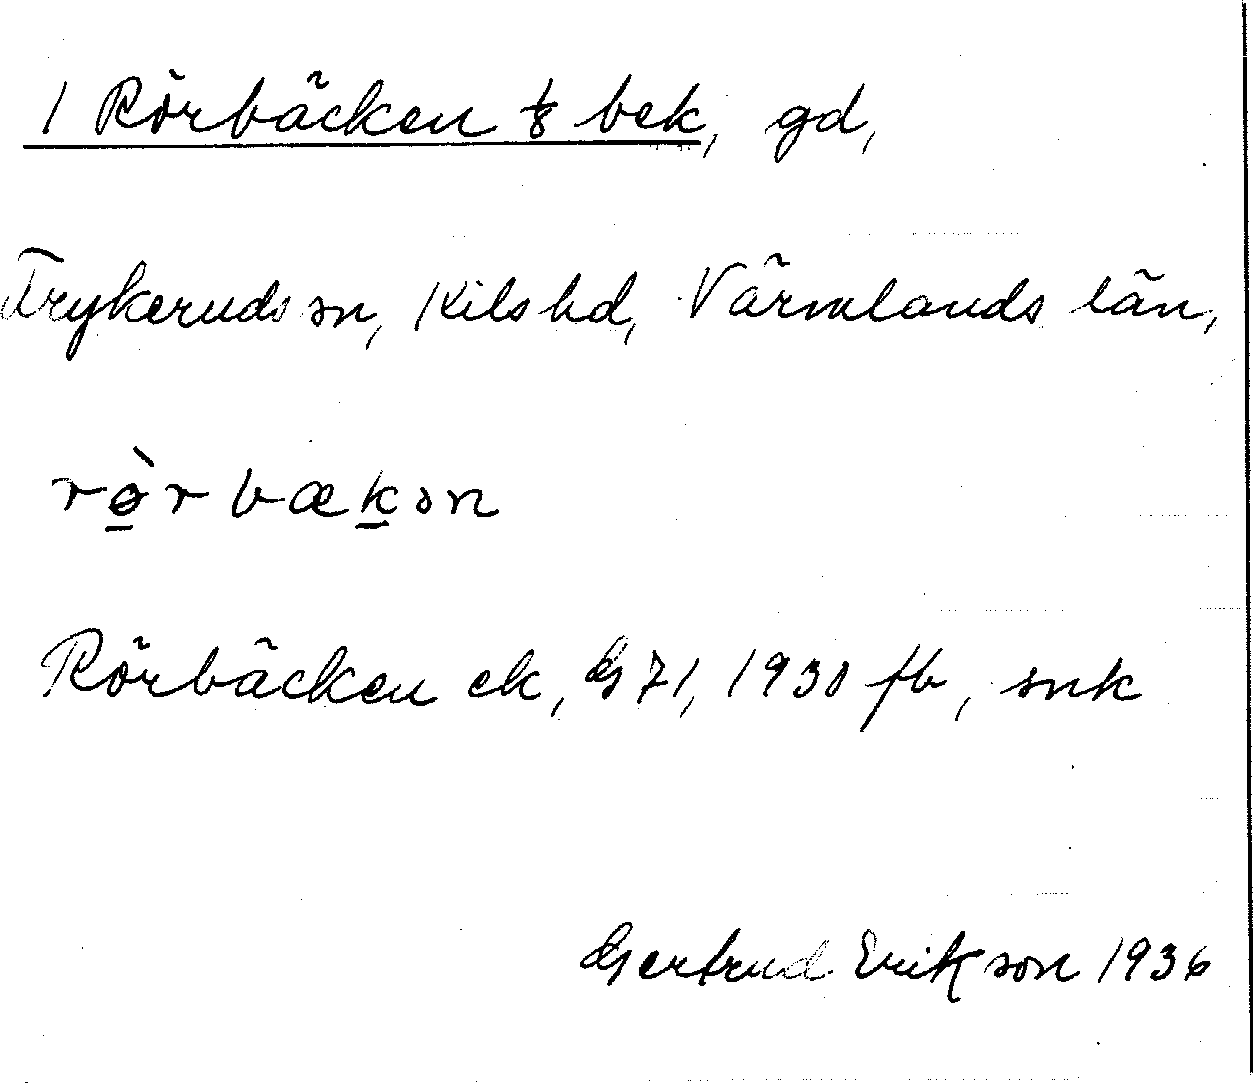 1 Rörbäcken 1/8 bek, gd,
Frykeruds sn, Kils hd, Värmlands län,
rø̲̀rbæk̲ən
Rörbäcken ek, G 71, 1930 fb, snk
Gertrud Erikson 1936